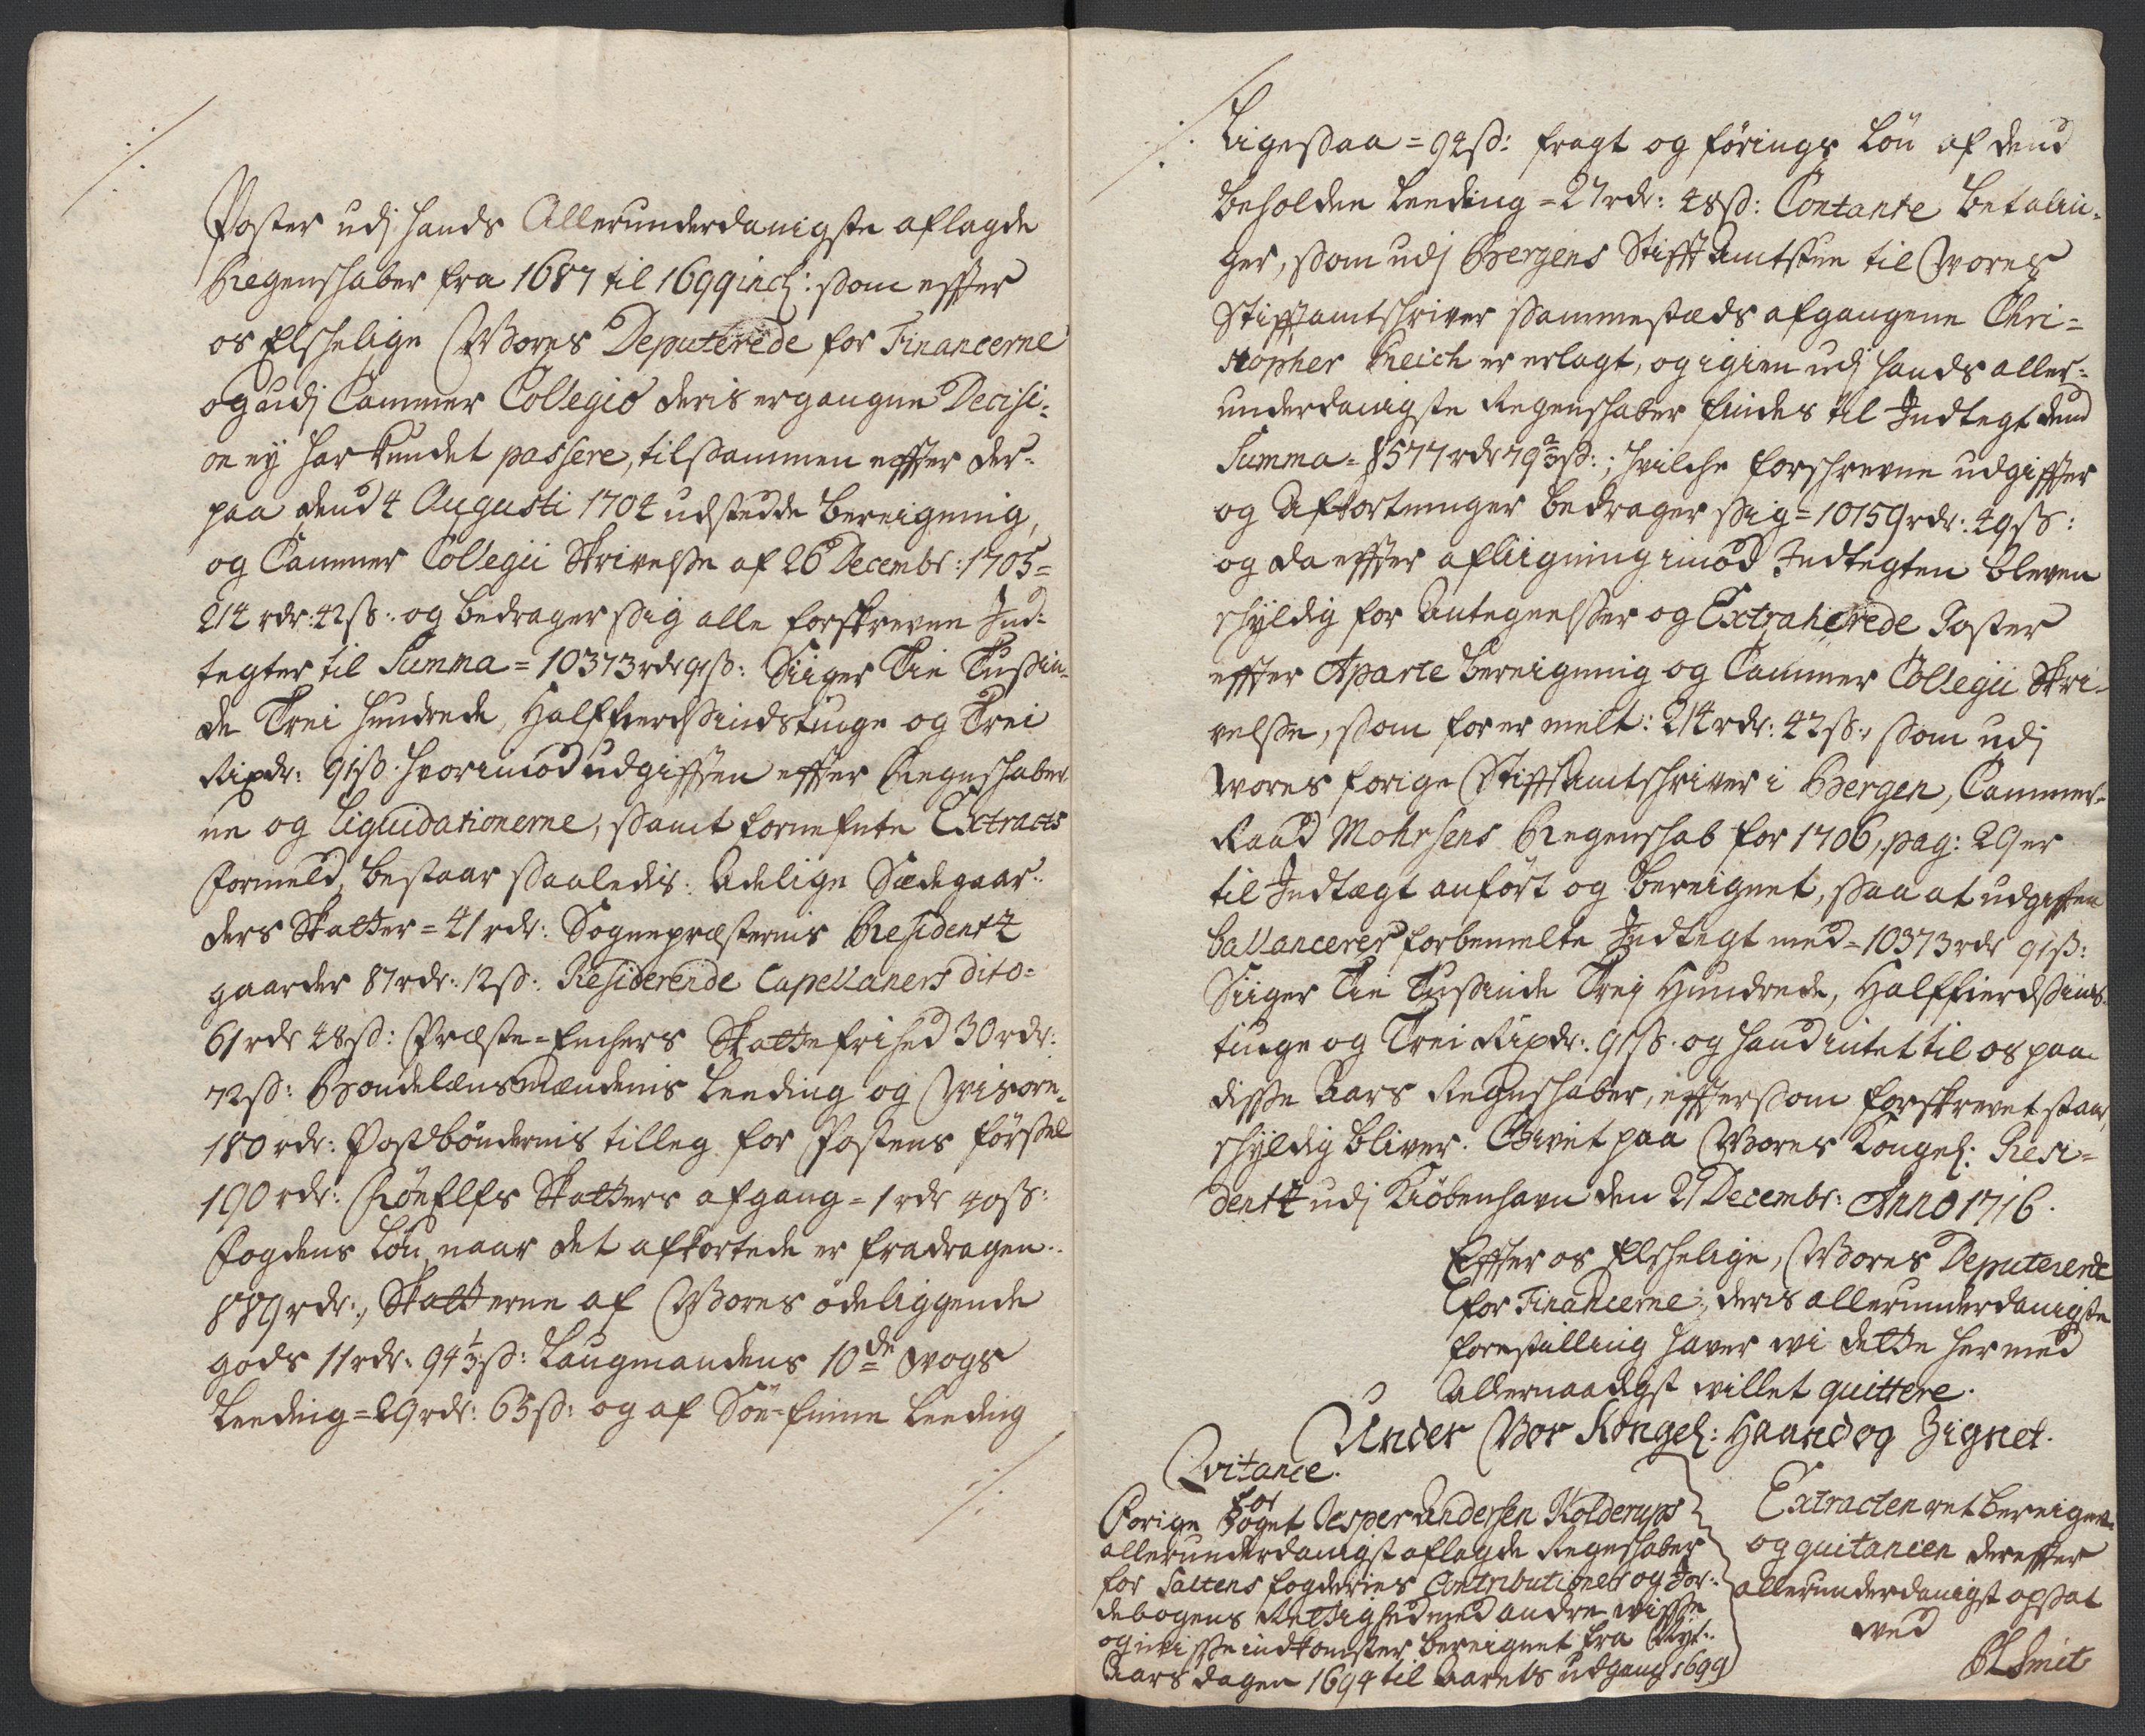 Poster udj hands Allerunderdanigste aflagde
Regenskaber fra 1687 til 1699 incl: som effter
os Elskelige Wores Deputerede for Financerne
og udj Cammer Collegio deris ergangne Decisi-
on ey har kundet passere, tilsammen effter der-
paa dend 4 Augusti 1704 udstedde bereigning,
og Cammer Collegii Skrivelse af 26 Decembr: 1705 =
214 rdr: 42 ß: og bedrager sig alle forskrevne Ind-
tegter til Summa = 10373 rdr 91 ß: Siiger Tie Tusin-
de Trei hundrede, Halffierdsindstiuge og Trei
Rixdr: 91 ß: hvorimod udgifften effter Regnskaber-
ne og Liquidationerne, samt fornefnte Extracts
formeld, bestaar saaledis: Adelige Sædegaar-
ders Skatter = 41 rdr: Sognepræsternis Residentz
gaarder 87 rdr: 12 ß: Residerende Capellaners dito =
61 rdr 48 ß: Præste-Enchers Skattefrihed 30 rdr:
72 ß: Bondelænsmændenis Leeding og Wisøre-
180 rdr: Postbøndernis tilleg for Postens førsel
190 rdr: Skatters afgang = 1 rdr 40 ß:
Fogdens Løn, naar det afkortede er fradragen
889 rdr:, Skatterne af Wores ødeliggende
gods 11 rdr: 94 1/3 ß: Laugmandens 10de wogs
Leeding = 29 rdr: 65 ß: og af Søe-finne Leeding
Ligesaa = 92 ß: fragt og førings Løn af dend
beholden Leeding = 27 rdr: 48 ß: Contante betalin-
ger, som udj Bergens Stifft Amtstue til Wores
Stifftamtskriver sammestæds afgangene Chri-
stopher Reich er erlagt, og igien udj hands aller-
underdanigste Regenskaber findes til Indtegt dend
Summa = 8577 rdr 79 2/3 ß:; hvilche forschrevne udgiffter
og Afkortninger bedrager sig = 10159 rdr: 49 ß:
og da effter afliigning imod Indtegten bleven
schyldig for Antegnelser og Extraherede Poster
effter Aparte bereigning og Cammer Collegii Skri-
velse, som for er melt: 214 rdr: 42 ß: som udj
wores forige Stifftamtschriver i Bergen, Cammer-
Raad Mohrsens Regenschab for 1706, pag: 29 er
til Indtægt anført og bereignet, saa at udgifften
ballancerer forbemelte Indtegt med = 10373 rdr 91 ß:
Siiger Tie Tusinde Trej Hundrede, Halffierdsinds-
tiuge og Trei Rixdr: 91 ß: og hand intet til os paa
disse Aars Regnskaber, efftersom forskrevet staar,
schyldig bliver. Givet paa Wores Kongel: Resi-
dentz udj Kiøbenhavn den 21 Decembr: Anno 1716.
Effter os Elskelige, Wores Deputerede
for Financerne, deris allerunderdanigste
forestilling haver wi dette her med
allernaadigst willet quittere.
Under Vor Kongel: Haand og Zignet.
Qvitance.
for
Forige Foget Jesper Andersen Kolderups
allerunderdanigst aflagde Regnskaber
for Saltens fogderies Contributioner og Jor-
debogens Rettighed med andre wisse
og uwisse indkomster, bereignet fra Nyt-
Aars dagen 1694 til Aarets udgang 1699
Extracten ret bereignet
og quitancen dereffter
allerunderdanigst opsat
wed
Smit